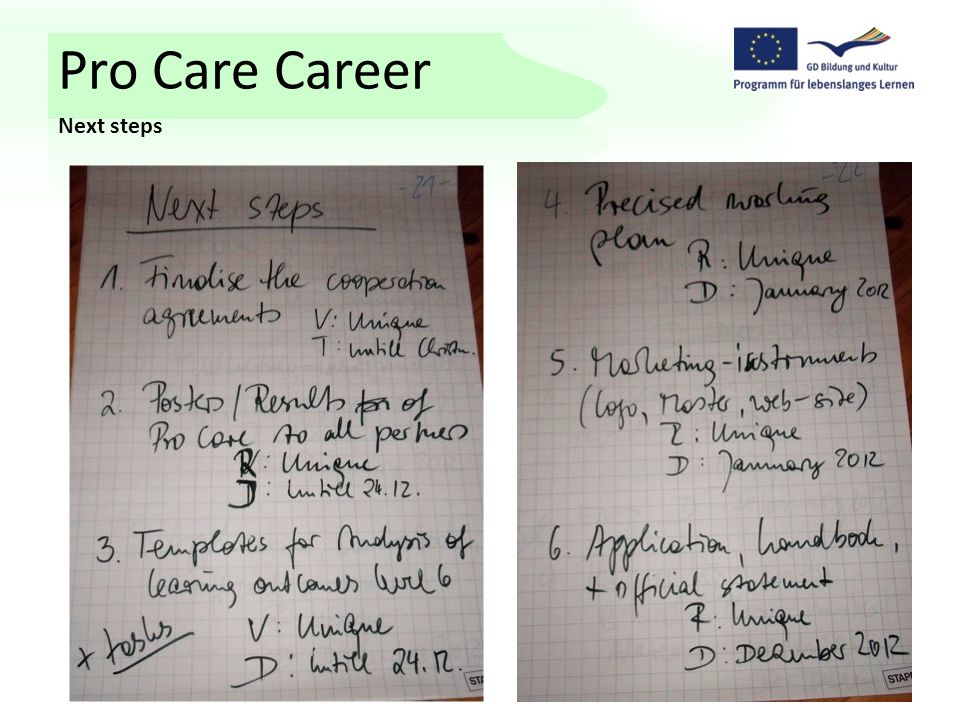 Pro Care Career
Next steps
GD Bildung und Kultur
Programm für lebenslanges Lernen
-21-
Next steps
1. Finalise the cooperation
agreements
V: Unique
T: untill Christm.
2. Posters / Results for of
Pro Care to all partners
R: Unique
D: Untill 24.12.
3. Templates for Analysis of
learning outcomes level 6
+ tasks
V: Unique
D: untill 24.12.
-22
4. Precised working
plan
R: Unique
D: January 2012
5. Marketing-instruments
(Logo, Poster, web-site)
R: Unique
D: January 2012
6. Application, handbook,
+ official statement
R: Unique
D: December 2012